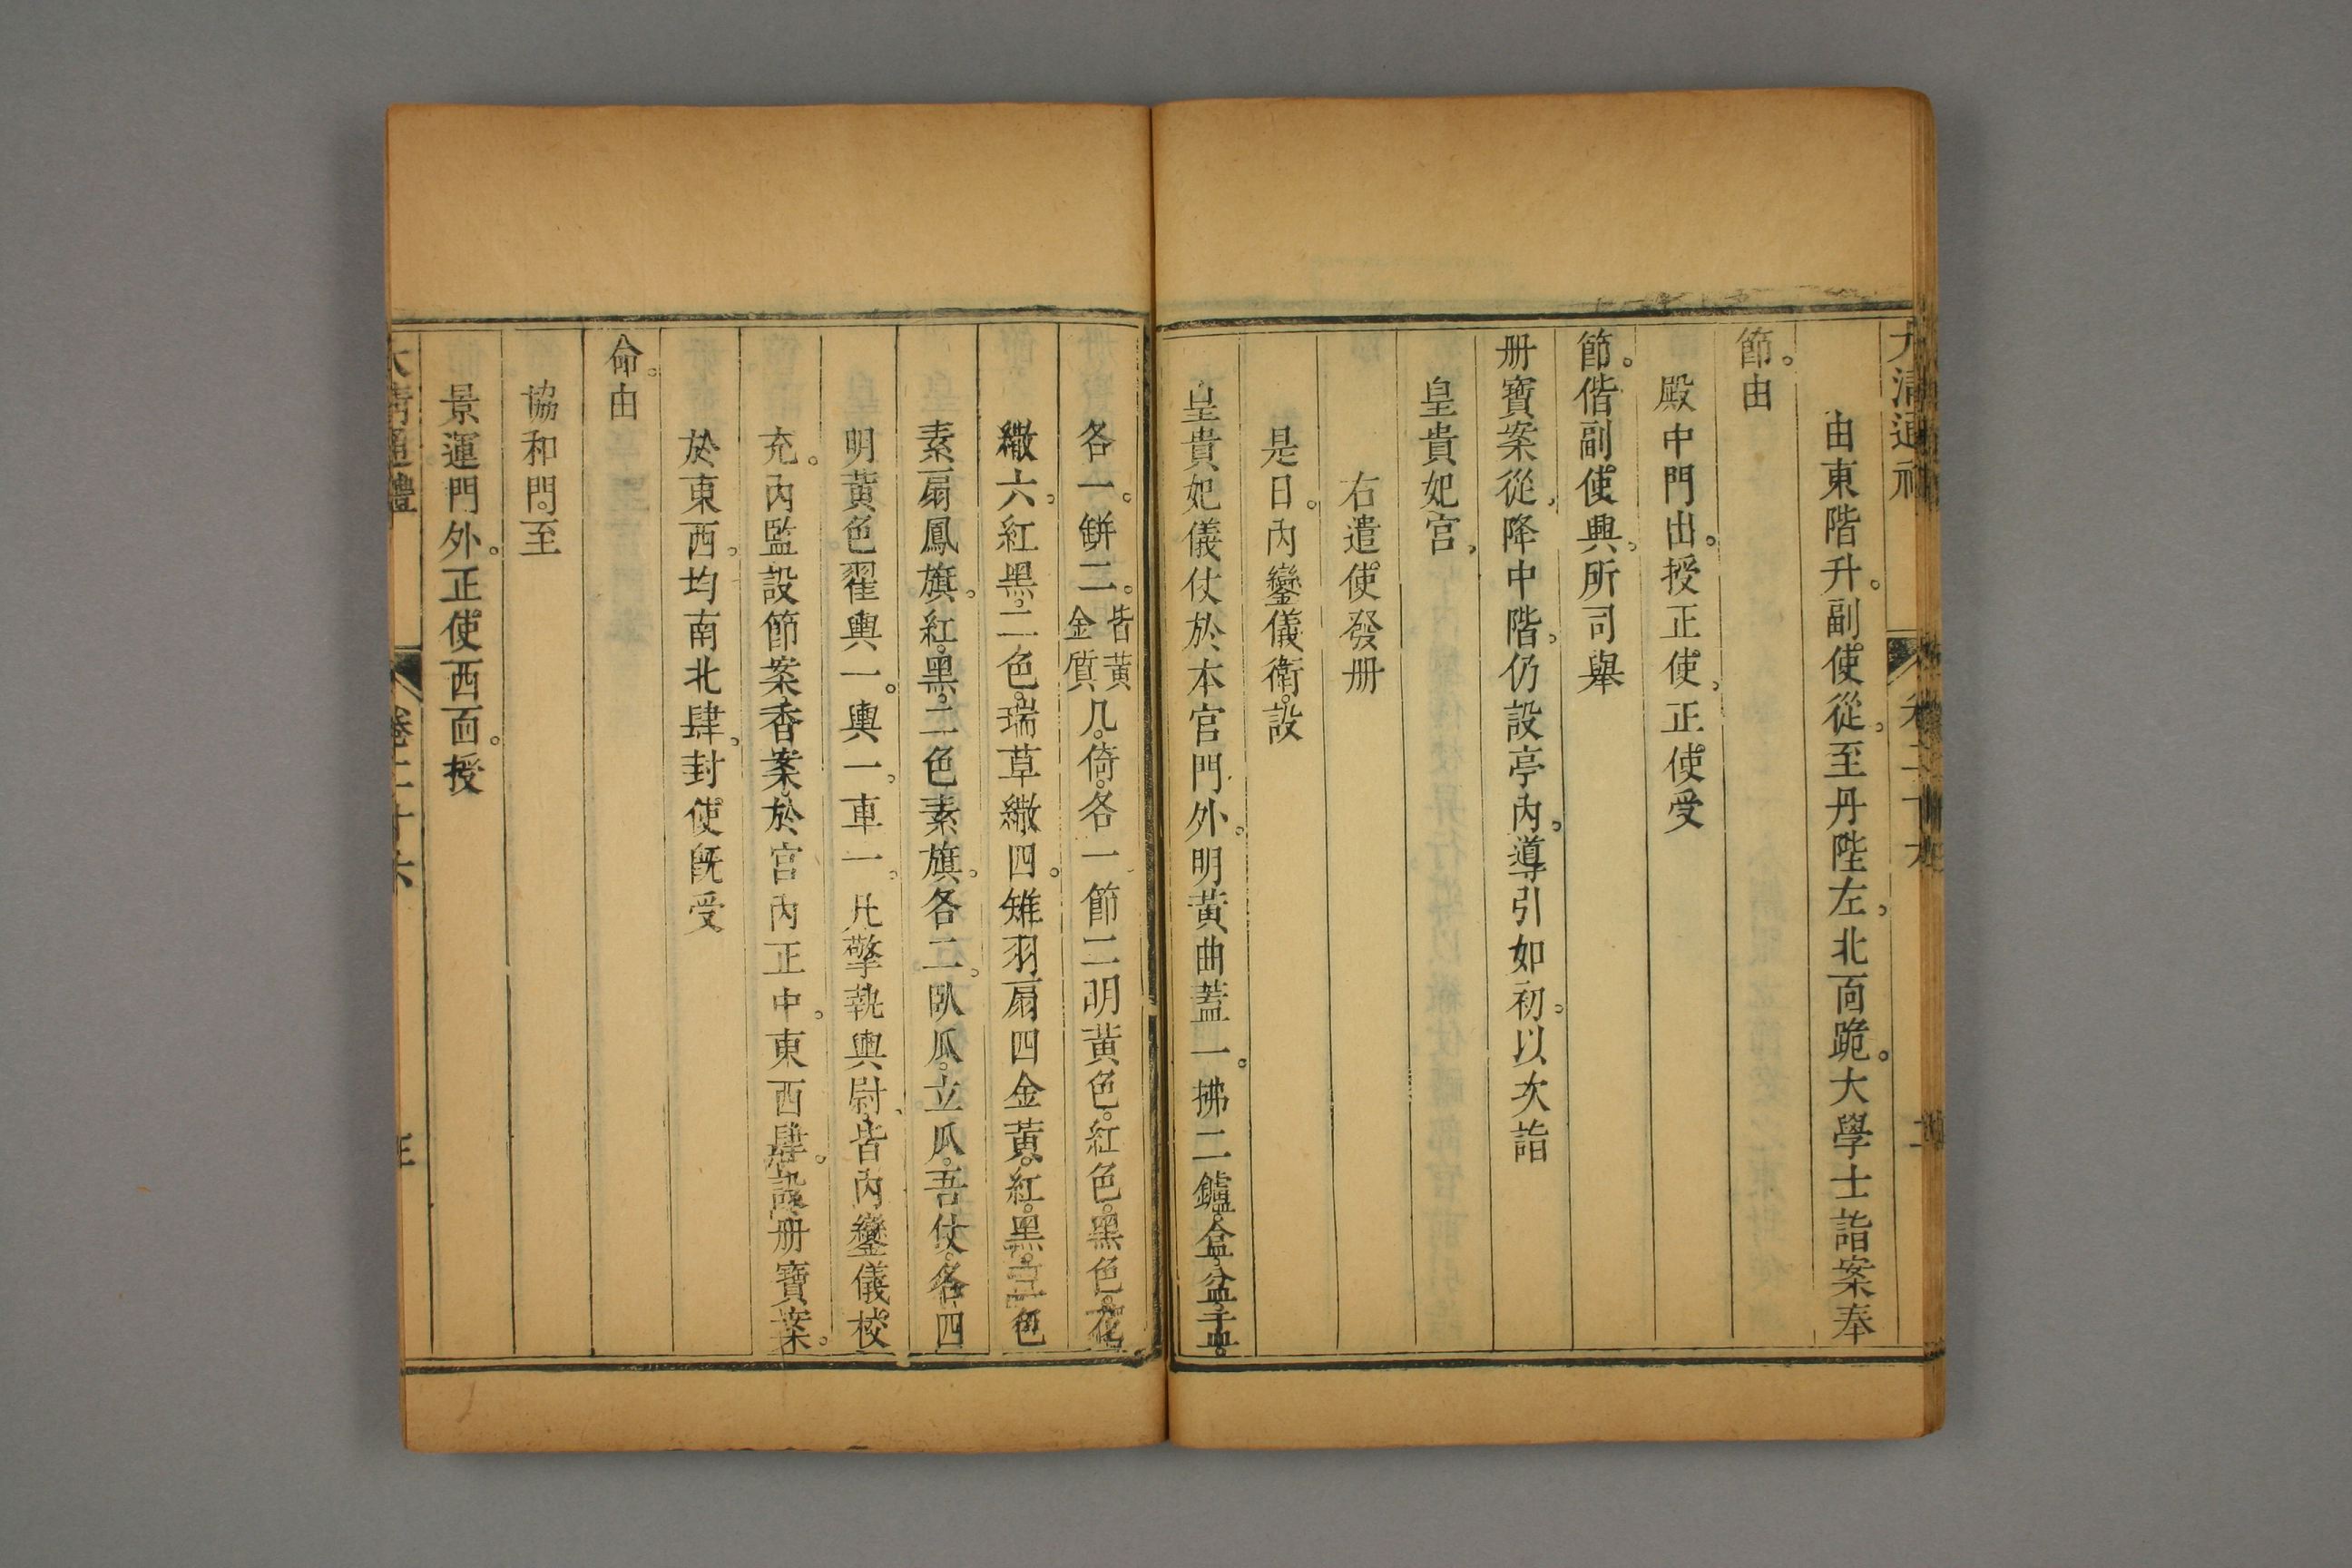 大清通禮 卷二十六
由東階升。副使從。至丹陛左。北面跪。大學士詣案奉
節。由
殿中門出。授正使。正使受
節。偕副使興。所司舉
册寶案從。降中階。仍設亭內。導引如初。以次詣
皇貴妃宮。
右遣使發册
是日。內鑾儀衛。設
皇貴妃儀仗於本宮門外。明黃曲蓋一。拂二。鑪。盒。盆。盂。
各一。缾二。皆黃金質几。倚。各一節二明黃色。紅色。黑色。花
繖六。紅黑。二色。瑞草繖四。雉羽扇四金黃。紅。黑。三色
素扇鳳旗。紅。黑。二色素旗。各二。臥瓜。立瓜。吾仗。各四
明黃色翟輿一。輿一。車一。凡擎執輿尉。皆內鑾儀校
充。內監設節案。香案。於宮內正中。東西肆。設册寶案。
於東西。均南北肆。封使既受
命。由
協和門。至
景運門外。正使西面。授
大清通禮 卷二十六